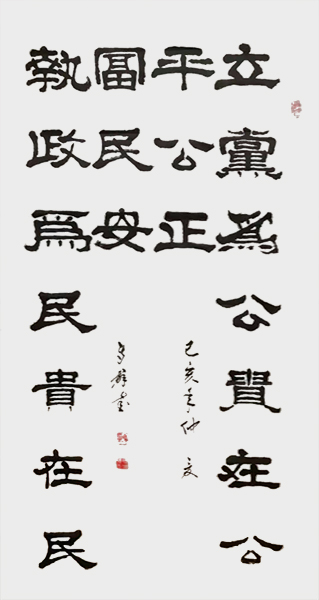 立黨爲公貴在公
平公正
己亥年仲夏
冨民安
執政爲民貴在民